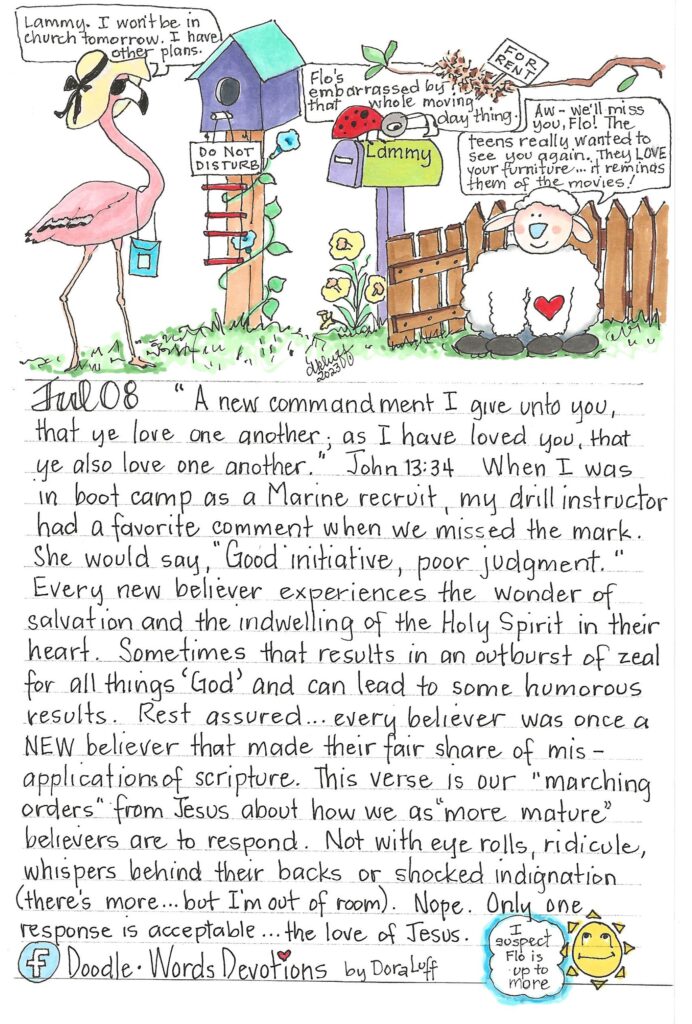 Lammy. I won't be in
church tomorrow. I have
other plans.
DO NOT
DISTURB
Flo's
embarrassed by
that whole moving
day thing.
FOR
RENT
Lammy
Aw-- we'll miss
you, Flo! The
teens really wanted to
see you again. They LOVE
your furniture... it reminds
them of the movies!
2023
Jul 08 "A new commandment I give unto you,
that ye love one another; as I have loved you, that
ye also love one another." John 13:34 When I was
in boot camp as a Marine recruit, my drill instructor
had a favorite comment when we missed the mark.
She would say, "Good initiative, poor judgment."
Every new believer experiences the wonder of
salvation and the indwelling of the Holy Spirit in their
heart. Sometimes that results in an outburst of zeal
for all things 'God' and can lead to some humorous
results. Rest assured... every believer was once a
NEW believer that made their fair share of mis-
applications of scripture. This verse is our "marching
orders" from Jesus about how we as "more mature"
believers are to respond. Not with eye rolls, ridicule,
whispers behind their backs or shocked indignation
(there's more... but I'm out of room). Nope. Only one
response is acceptable... the love of Jesus.
f Doodle • Words Devotions by Dora Luff
I
suspect
Flo is
up to
more